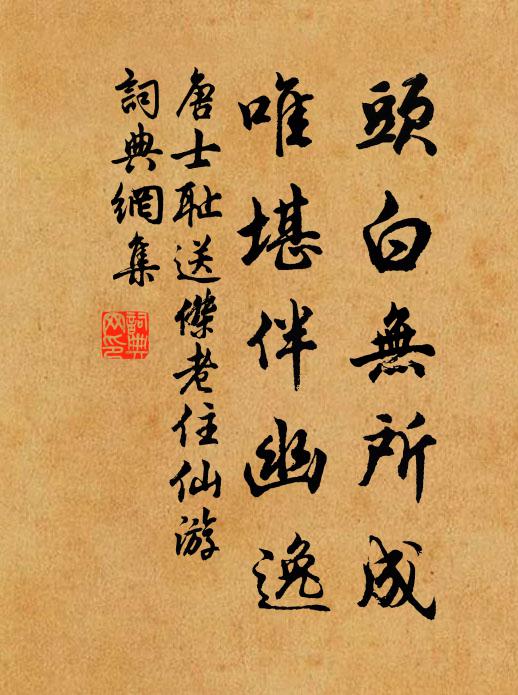 頭白無所成
唯堪伴幽逸
唐士恥送傑老住仙游
詞典網集
詞典
网印